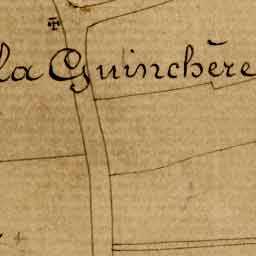 la Guinchère